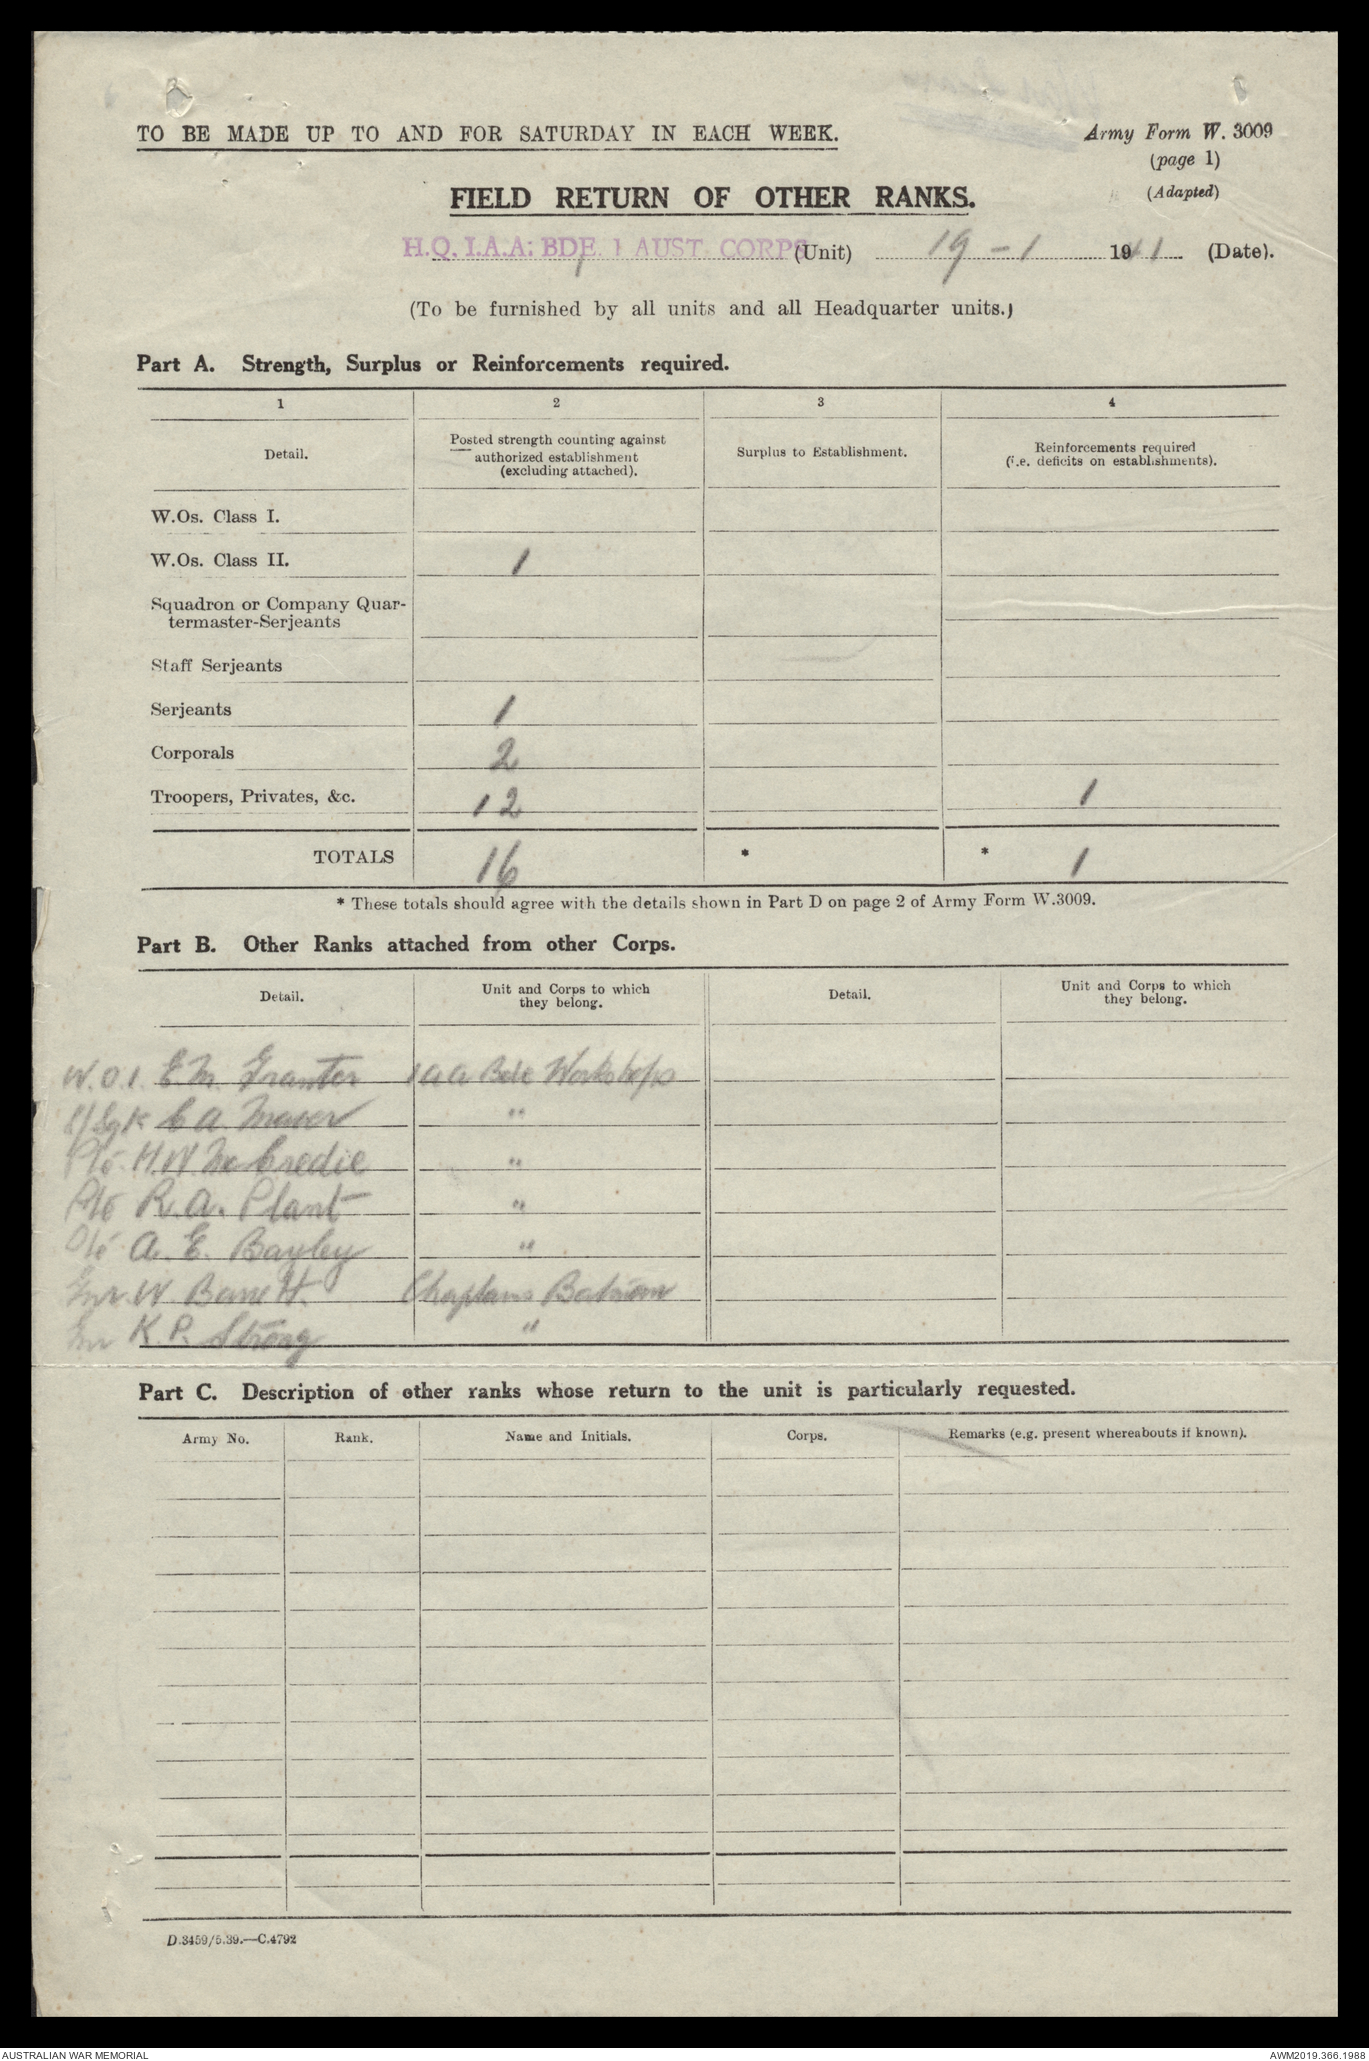 TO BE MADE UP TO AND FOR SATURDAY IN EACH WEEK.
Army Form W. 3009
(page 1)
(Adapted)
FIELD RETURN OF OTHER RANKS.
H.Q. 1.A.A: BDE. 1 AUST. CORPS (Unit) 19 - 1 1941 (Date).
(To be furnished by all units and all Headquarter units.)
Part A. Strength, Surplus or Reinforcements required.
1 2 3 4
Detail. Posted strength counting against authorized establishment (excluding attached). Surplus to Establishment. Reinforcements required (i.e. deficits on establishments).
W.Os. Class I.
W.Os. Class II. 1
Squadron or Company Quar-
termaster-Serjeants
Staff Serjeants
Serjeants 1
Corporals 2
Troopers, Privates, &c. 12 1
TOTALS 16 * * 1
* These totals should agree with the details shown in Part D on page 2 of Army Form W.3009.
Part B. Other Ranks attached from other Corps.
Detail. Unit and Corps to which they belong. Detail. Unit and Corps to which they belong.
W.O.1. E.M. Granter 1 A A Bde Workshops
S/Sgt C A "
Pte H.W. McCredie "
Pte R.A. Plant "
Pte A. E. Bayley "
Gnr W Barrett. Chaplains Batman
Gnr K.P. Strong "
Part C. Description of other ranks whose return to the unit is particularly requested.
Army No. Rank. Name and Initials. Corps. Remarks (e.g. present whereabouts if known).
D.3459/5.39.—C.4792
AUSTRALIAN WAR MEMORIAL
AWM2019.366.1988